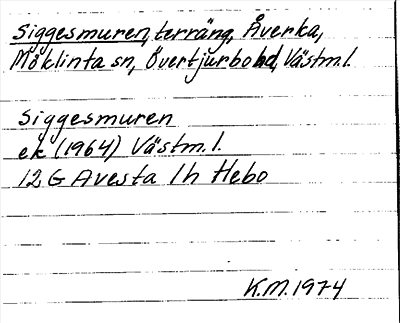 Siggesmuren, terräng, Åverka,
Möklinta sn, Övertjurbo hd, Västm. l.
Siggesmuren
ek (1964) Västm. l.
12 G Avesta 1h Hebo
K.M. 1974